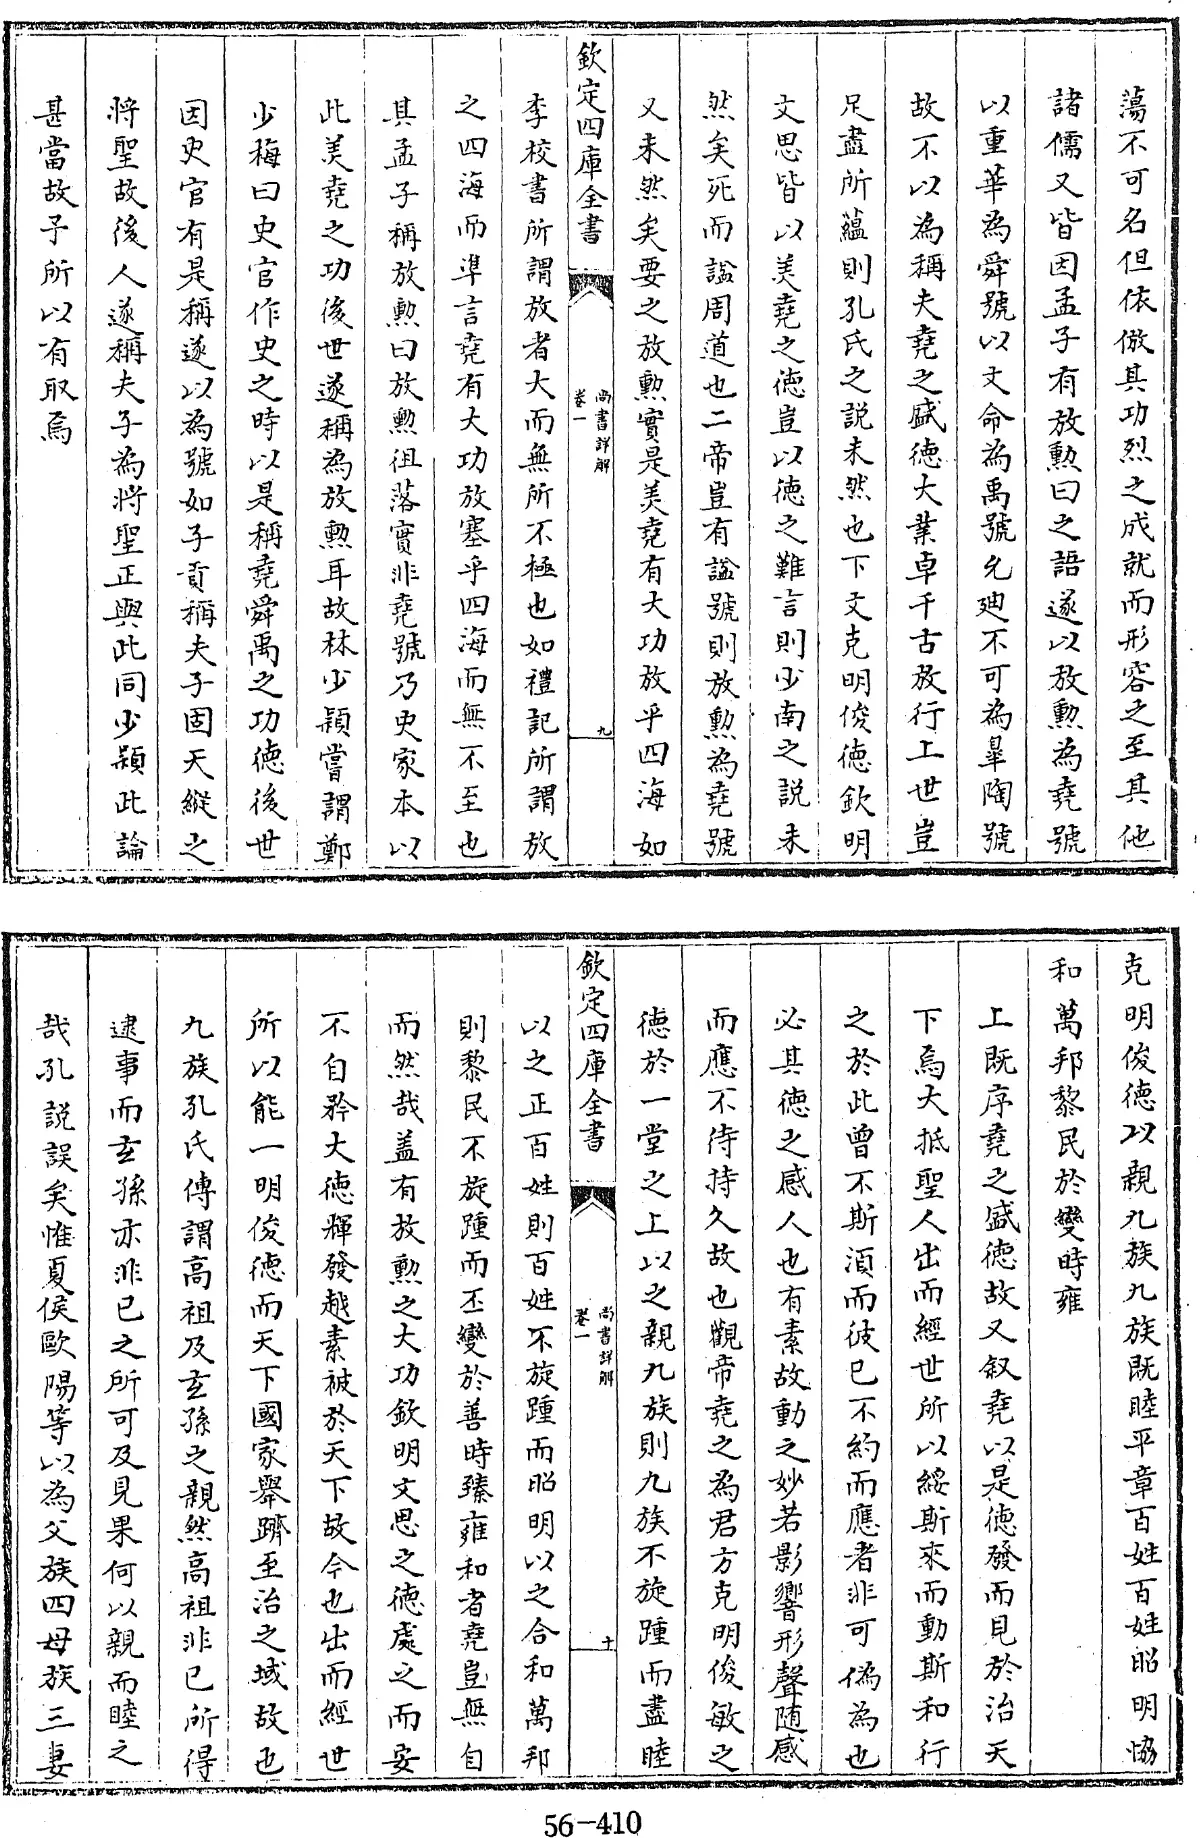 蕩不可名但依倣其功烈之成就而形容之至其他
諸儒又皆因孟子有放勲曰之語遂以放勲為堯號
以重華為舜號以文命為禹號允廸不可為臯陶號
故不以為稱夫堯之盛德大業卓千古放行上世豈
足盡所蘊則孔氏之説未然也下文克明俊德欽明
文思皆以美堯之德豈以德之難言則少南之説未
然矣死而諡周道也二帝豈有諡號則放勲為堯號
又未然矣要之放勲實是美堯有大功放乎四海如
欽定四庫全書
尚書詳解
卷一
九
李校書所謂放者大而無所不極也如禮記所謂放
之四海而凖言堯有大功放塞乎四海而無不至也
其孟子稱放勲曰放勲徂落實非堯號乃史家本以
此美堯之功後世遂稱為放勲耳故林少穎嘗謂鄭
少梅曰史官作史之時以是稱堯舜禹之功德後世
因史官有是稱遂以為號如子貢稱夫子固天縱之
將聖故後人遂稱夫子為將聖正與此同少穎此論
甚當故予所以有取焉
克明俊德以親九族九族既睦平章百姓百姓昭明協
和萬邦黎民於變時雍
上既序堯之盛德故又叙堯以是德發而見於治天
下焉大抵聖人出而經世所以綏斯來而動斯和行
之於此曾不斯湏而彼已不約而應者非可偽為也
必其德之感人也有素故動之妙若影響形聲随感
而應不待持久故也觀帝堯之為君方克明俊敏之
德於一堂之上以之親九族則九族不旋踵而盡睦
欽定四庫全書
尚書詳解
卷一
十
以之正百姓則百姓不旋踵而昭明以之合和萬邦
則黎民不旋踵而丕變於善時臻雍和者堯豈無自
而然哉盖有放勲之大功欽明文思之德處之而安
不自矜大德輝發越素被於天下故今也出而經世
所以能一明俊德而天下國家舉躋至治之域故也
九族孔氏傳謂高祖及玄孫之親然高祖非已所得
逮事而玄孫亦非已之所可及見果何以親而睦之
哉孔説誤矣惟夏侯歐陽等以為父族四母族三妻
56-410